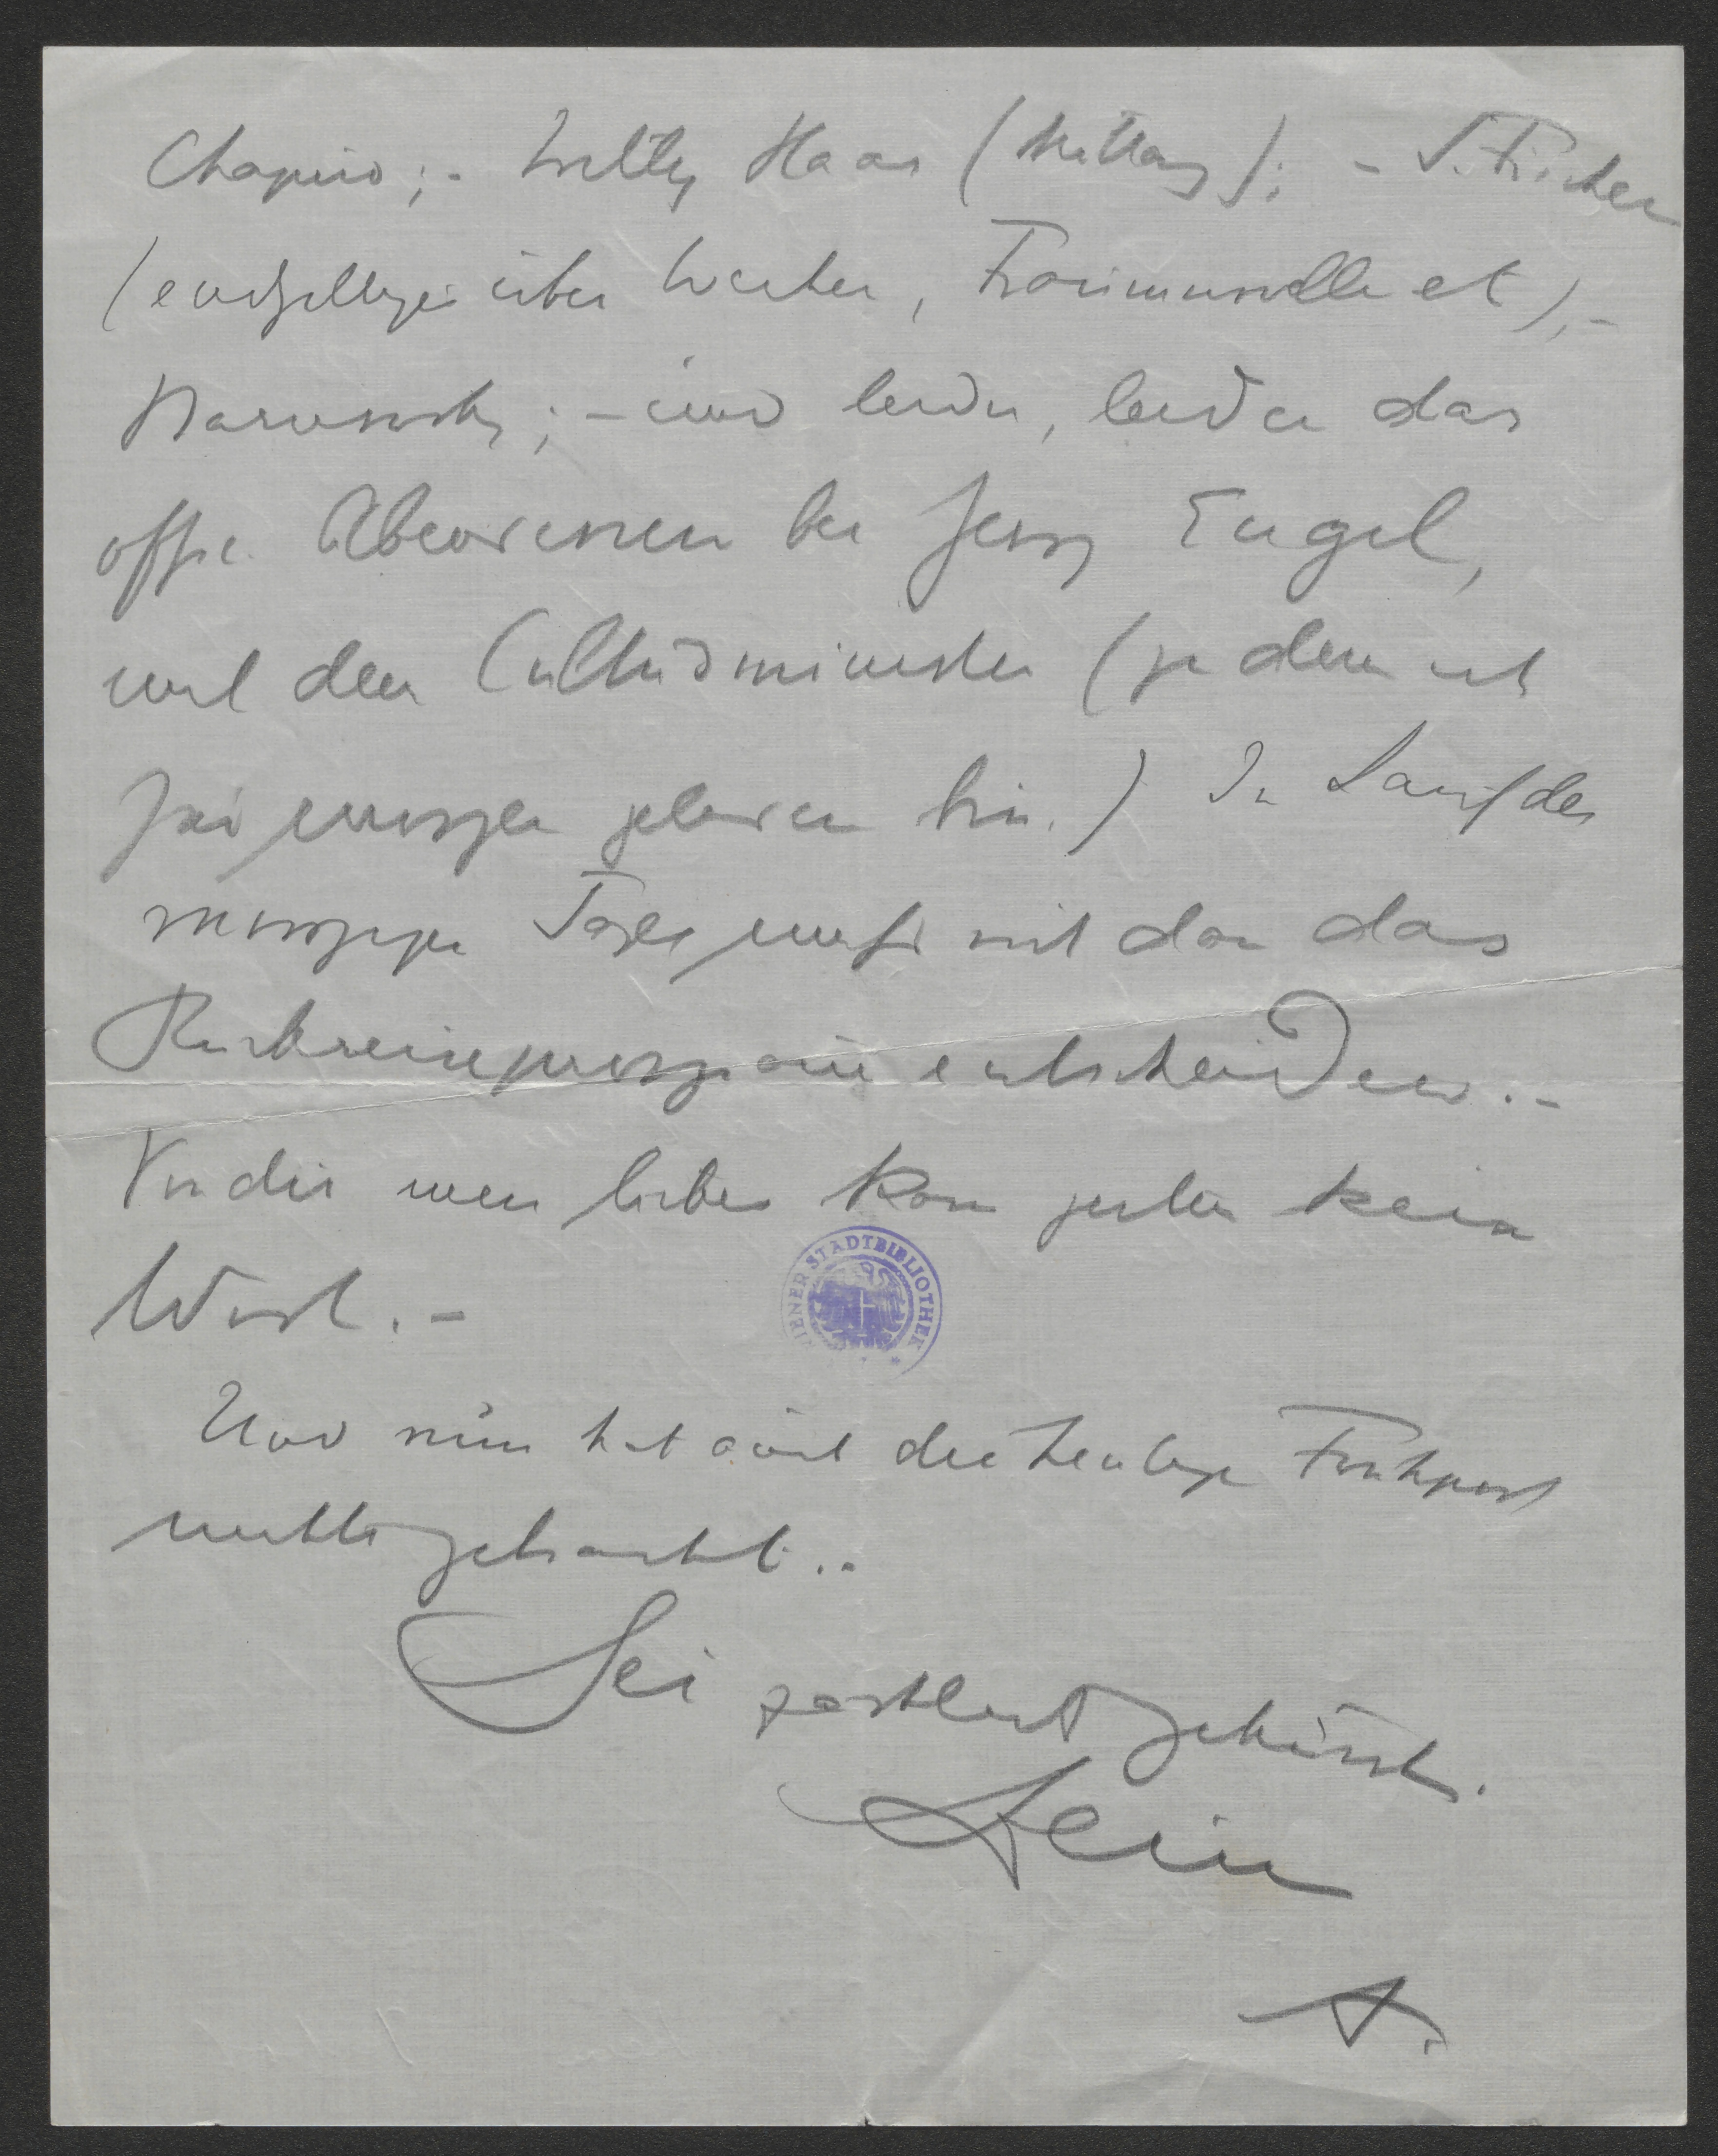 Chapiro;- Willy Haas (Mittag); - S. Fischer
(endgiltiges über Weiber, Traumnovelle etc),-
Barnowsky; - und leider, leider das
offic. Abendessen bei Jessy Engel,
mit dem Cultusminister (zu dem ich
für morgen geladen bin.) Im Lauf des
morgigen Tages muß sich dan das
Rückreiseprogram entscheiden.-
Von dir mein liebes kam gestern kein
Wort.-
Und nun hat auch die heutige Frühpost
nichts gebracht..
Sei zärtlichst geküsst.
Dein
A.
WIENER STADTBIBLIOTHEK